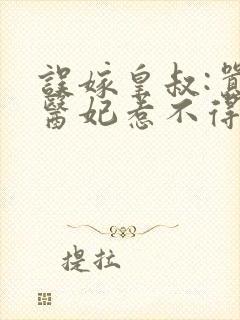 誤嫁皇叔:囂
醫妃惹不得
提拉